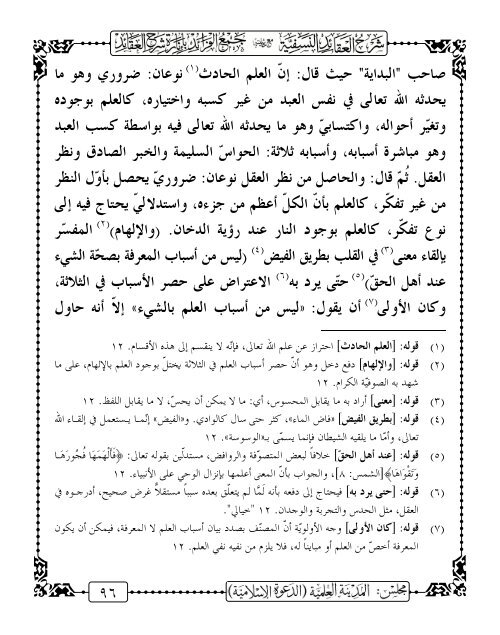 شرح العقائد النسفية مع جمع الفرائد بإنارة شرح العقائد
صاحب "البداية" حيث قال: إنّ العلم الحادث(١) نوعان: ضروري وهو ما
يحدثه الله تعالى في نفس العبد من غير كسبه واختياره، كالعلم بوجوده
وتغيّر أحواله، واكتسابيّ وهو ما يحدثه الله تعالى فيه بواسطة كسب العبد
وهو مباشرة أسبابه، وأسبابه ثلاثة: الحواسّ السليمة والخبر الصادق ونظر
العقل. ثُمّ قال: والحاصل من نظر العقل نوعان: ضروريّ يحصل بأوّل النظر
من غير تفكّر، كالعلم بأنّ الكلّ أعظم من جزءه، واستدلاليّ يحتاج فيه إلى
نوع تفكّر، كالعلم بوجود النار عند رؤية الدخان. (والإلهام)(٢) المفسّر
بإلقاء معنى(٣) في القلب بطريق الفيض(٤) (ليس من أسباب المعرفة بصحّة الشيء
عند أهل الحقّ)(٥) حتّى يرد به(٦) الاعتراض على حصر الأسباب في الثلاثة،
وكان الأولى(٧) أن يقول: «ليس من أسباب العلم بالشيء» إلاّ أنه حاول
(١) قوله: [العلم الحادث] احتراز عن علم الله تعالى، فإنّه لا ينقسم إلى هذه الأقسام. ١٢
(٢) قوله: [والإلهام] دفع دخل وهو أنّ حصر أسباب العلم في الثلاثة يختلّ بوجود العلم بالإلهام، على ما
شهد به الصوفيّة الكرام. ١٢
(٣) قوله: [معنى] أراد به ما يقابل المحسوس، أي: ما لا يمكن أن يحسّ، لا ما يقابل اللفظ. ١٢
(٤) قوله: [بطريق الفيض] «فاض الماء»، كثر حتى سال كالوادي. و«الفيض» إنّما يستعمل في إلقاء الله
تعالى، وأمّا ما يلقيه الشيطان فإنما يسمّى بـ«الوسوسة». ١٢
(٥) قوله: [عند أهل الحقّ] خلافاً لبعض المتصوّفة والروافض، مستدلّين بقوله تعالى: ﴿فَأَلْهَمَهَا فُجُورَهَا
وَتَقْوَاهَا﴾[الشمس: ٨]، والجواب بأنّ المعنى أعلمها بإنزال الوحي على الأنبياء. ١٢
(٦) قوله: [حتى يرد به] فيحتاج إلى دفعه بأنه لَمّا لم يتعلّق بعده سبباً مستقلاًّ غرض صحيح، أدرجوه في
العقل، مثل الحدس والتجربة والوجدان. ١٢ "خيالي".
(٧) قوله: [كان الأولى] وجه الأولويّة أنّ المصنّف بصدد بيان أسباب العلم لا المعرفة، فيمكن أن يكون
المعرفة أخصّ من العلم أو مبايناً له، فلا يلزم من نفيه نفي العلم. ١٢
مجلس: المدينة العلمية (الدعوة الإسلامية)
٩٦